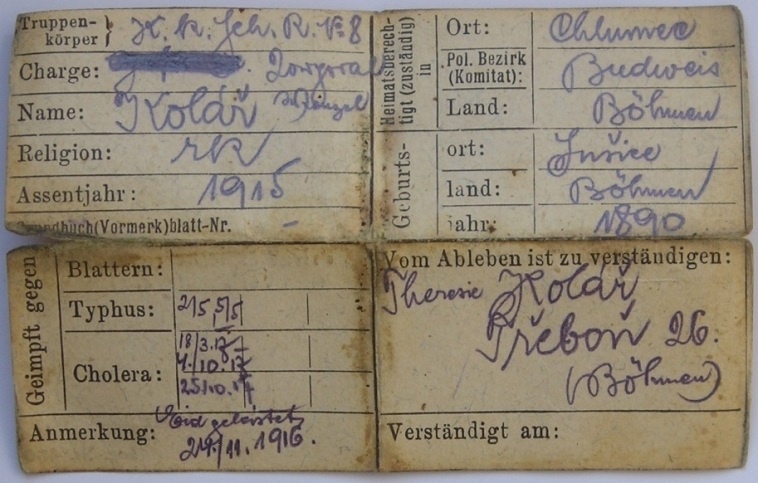 Truppen-
körper } K. k. Sch. R. № 8
Charge: Zugs
Name: Kolář Wenzel
Religion: rk
Assentjahr: 1915
Grundbuch(Vormerk)blatt-Nr. –
Heimatsberech-
tigt (zuständig)
in
Ort: Chlumec
Pol. Bezirk
(Komitat): Budweis
Land: Böhmen
Geburts-
ort: Lužice
land: Böhmen
jahr: 1890
Geimpft gegen
Blattern:
Typhus: 2/5 5/5
Cholera: 18/3.17
4/10.17
25/10.17
Anmerkung: Eid geleistet
24./11.1916.
Vom Ableben ist zu verständigen:
Theresie Kolář
Třeboň 26.
(Böhmen)
Verständigt am: